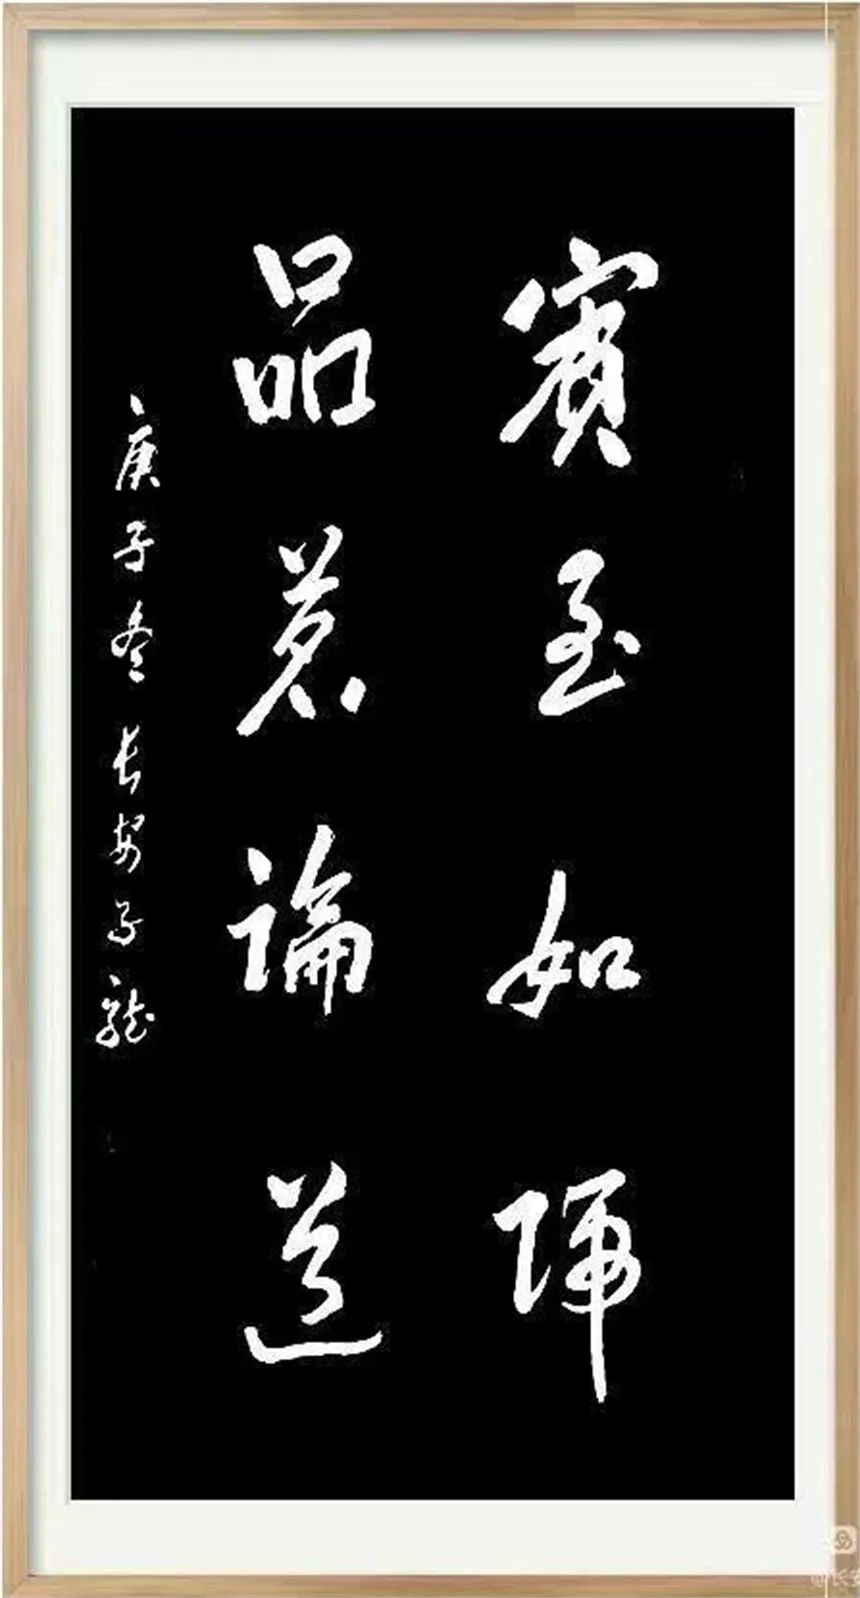 賓至如歸
品茗論道
庚子冬長安子龍
@长安